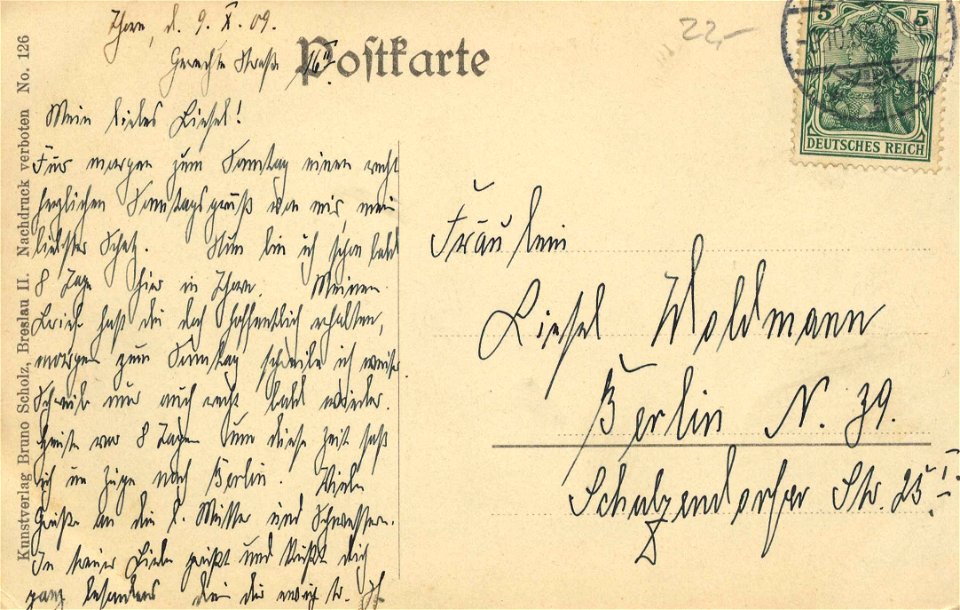 Thorn, d. 9. X. 09.
Gerechte Straße 16 II
Postkarte
22,-
5 5
DEUTSCHES REICH
Kunstverlag Bruno Scholz, Breslau II. Nachdruck verboten No. 126
Mein liebes Liesel!
Für morgen zum Sonntag einen recht
herzlichen Sonntagsgruß von mir, mein
liebster Schatz. Nun bin ich schon bald
8 Tage hier in Thorn. Meinen
Brief hast du doch hoffentlich erhalten,
morgen zum Sonntag schreibe ich weiter
Schreib nur auch recht bald wieder.
Heute vor 8 Tagen um diese Zeit saß
ich im Zuge nach Berlin. Viele
Grüße an die l. Mutter und Schwestern.
In treuer Liebe grüßt und küßt dich
ganz besonders dein
Fräulein
Liesel Woldmann
Berlin N. 39.
Schulzendorfer Str. 25 I.